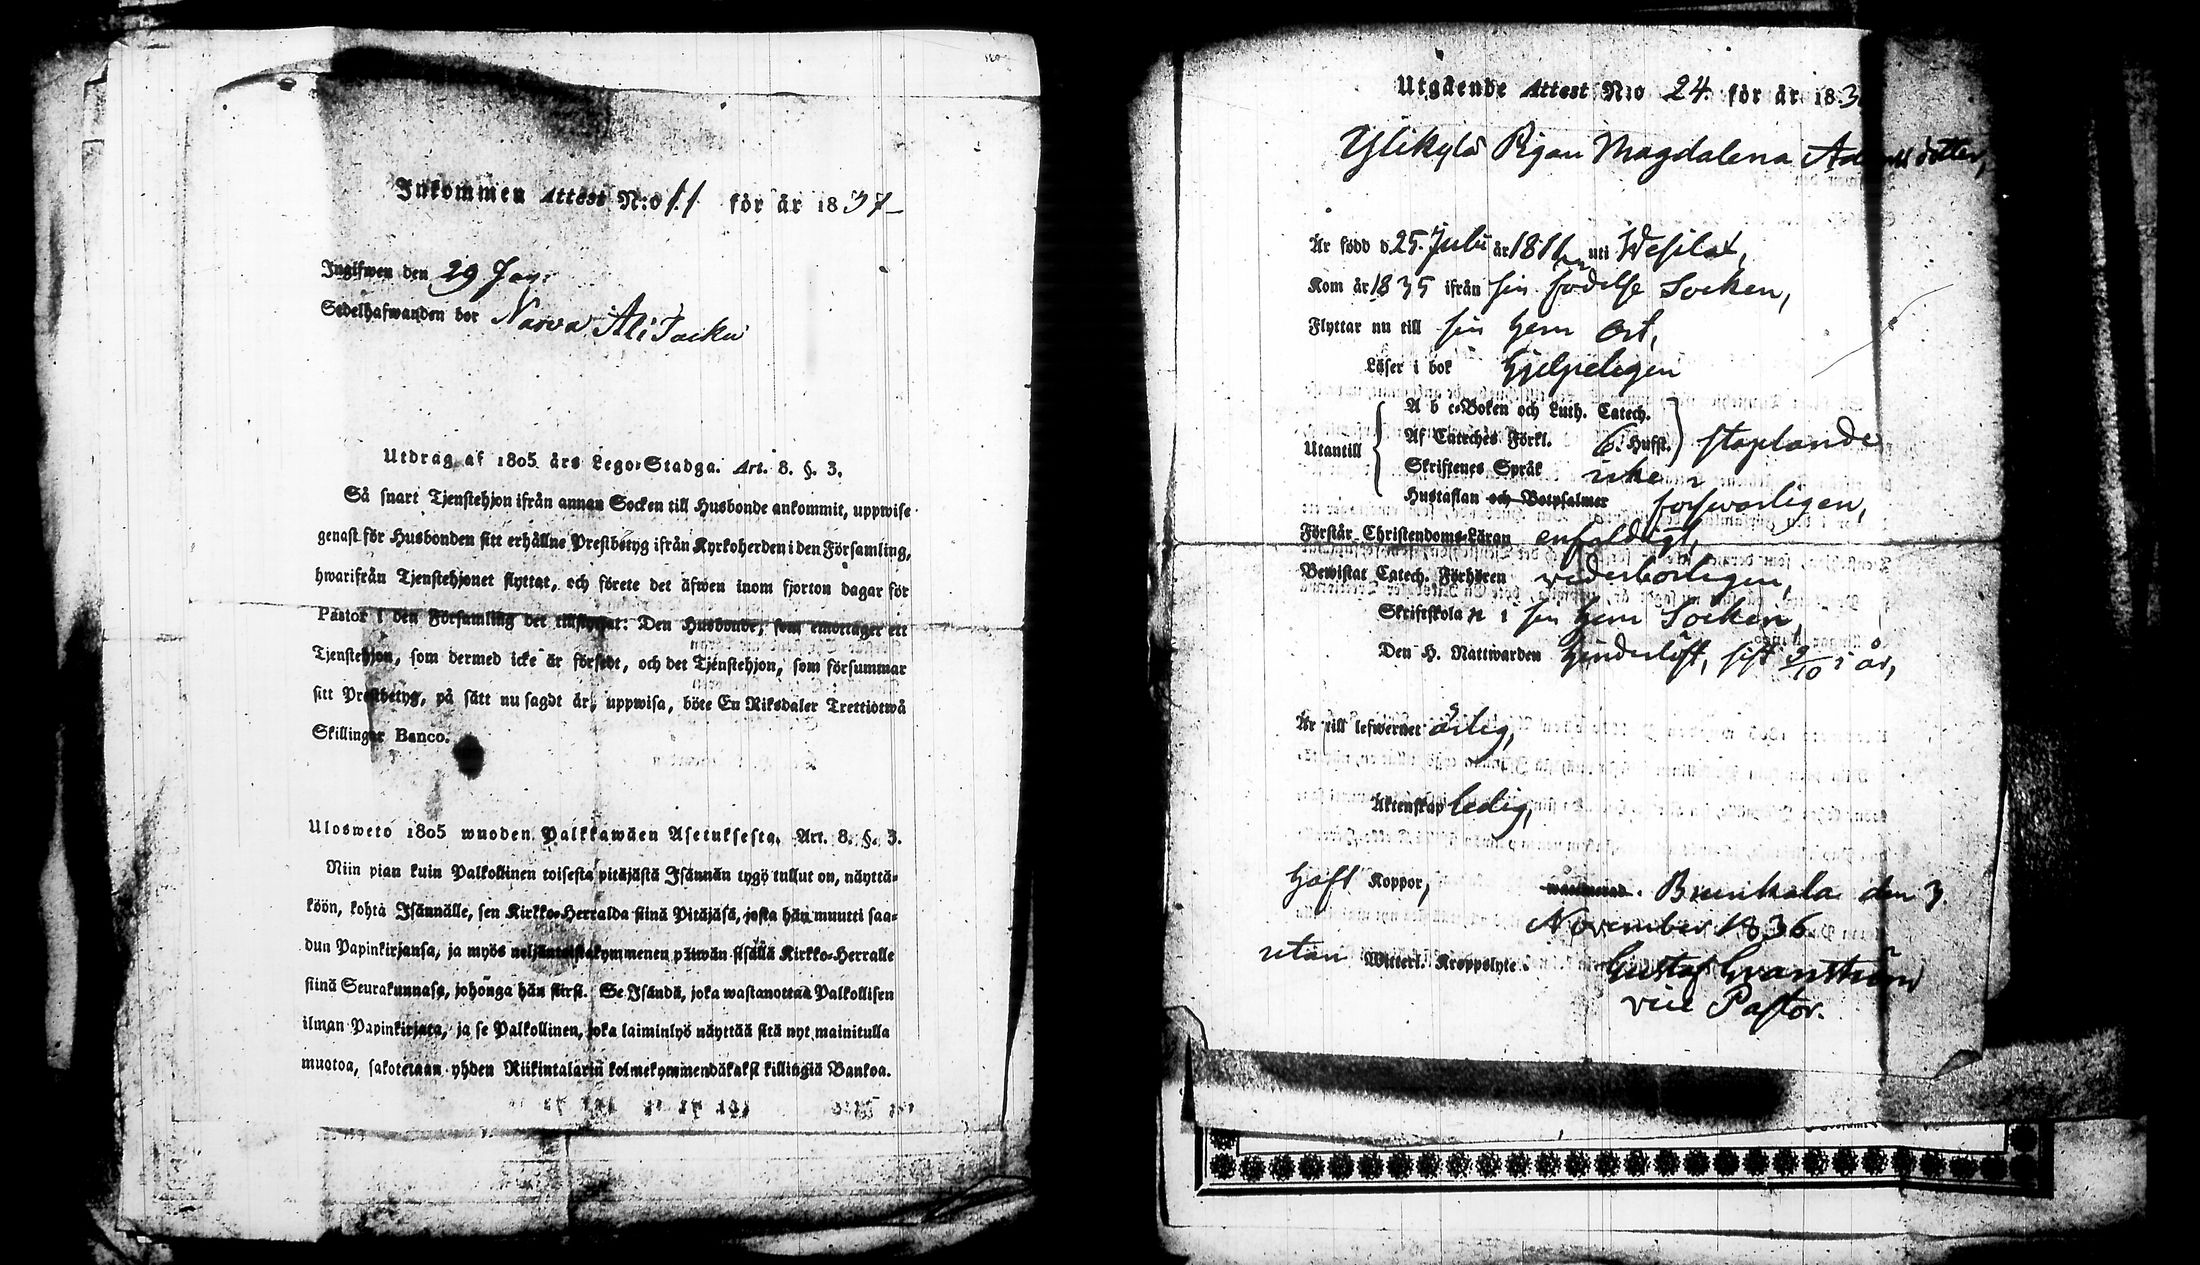 Inkommen Attest N:o 11 för år 1837
Ingifwen den 29 Jan:
Sedelhafwanden bor Narva Ali Jaska
Utdrag af 1805 års Lego-Stadga. Art. 8. §. 3.
Så snart Tjenstehjon ifrån annan Socken till Husbonde ankommit, uppwise
genast för Husbonden sitt erhållne Prestbetyg ifrån Kyrkoherden i den Församling,
hwarifrån Tjenstehjonet flyttat, och förete det äfwen inom fjorton dagar för
Pastor i den Församling det tillflyttat: Den Husbonde, som emottager ett
Tjenstehjon, som dermed icke är försedt, och det Tjenstehjon, som försummar
sitt Prestbetyg, på sätt nu sagdt är, uppwisa, böte En Riksdaler Trettiotwå
Skillingar Banco.
Ulosweto 1805 wuoden Palkkawäen Asetuksesta. Art. 8. §. 3.
Niin pian kuin Palkollinen toisesta pitäjästä Isännän tygö tullut on, näyttä-
köön, kohta Isännälle, sen Kirkko-Herralda siinä Pitäjäsä, josta hän muutti saa-
dun Papinkirjansa, ja myös neljäntoistakymmenen päiwän sisällä Kirkko-Herralle
siinä Seurakunnasa, johonga hän siirsi. Se Isändä, joka wastanottaa Palkollisen
ilman Papinkirjata, ja se Palkollinen, joka laiminlyö näyttää sitä nyt mainitulla
muotoa, sakotetaan yhden Riikintalarin kolmekymmendäkaksi killingiä Bankoa.
Utgående Attest N:o 24 för år 183
Ylikylä Pigan Magdalena dotter,
Är född d. 25. Julii år 1811 uti Wesilax,
Kom år 1835 ifrån sin födelse Socken,
Flyttar nu till sin hem ort,
Läser i bok hjelpeligen
A b c-Boken och Luth. Catech.
Utantill Af Cateches Förkl. 6. Hufst. staplande
Skriftenes Språk
Hustaflan och Botpsalmer försvarligen,
Förstår Christendoms-Läran enfaldigt,
Bewistat Catech. Förhören vederborligen,
Skriftskolan i sin hem Socken,
Den H. Nattwarden hinderlöst, sist 9/10 i år,
Är till lefwernet ärlig,
Äktenskap ledig,
Haft Koppor, waccinerad. Brunkala den 3
November 1836
utan Witterl. Kroppslyte. Gustaf Granström
vice Pastor.